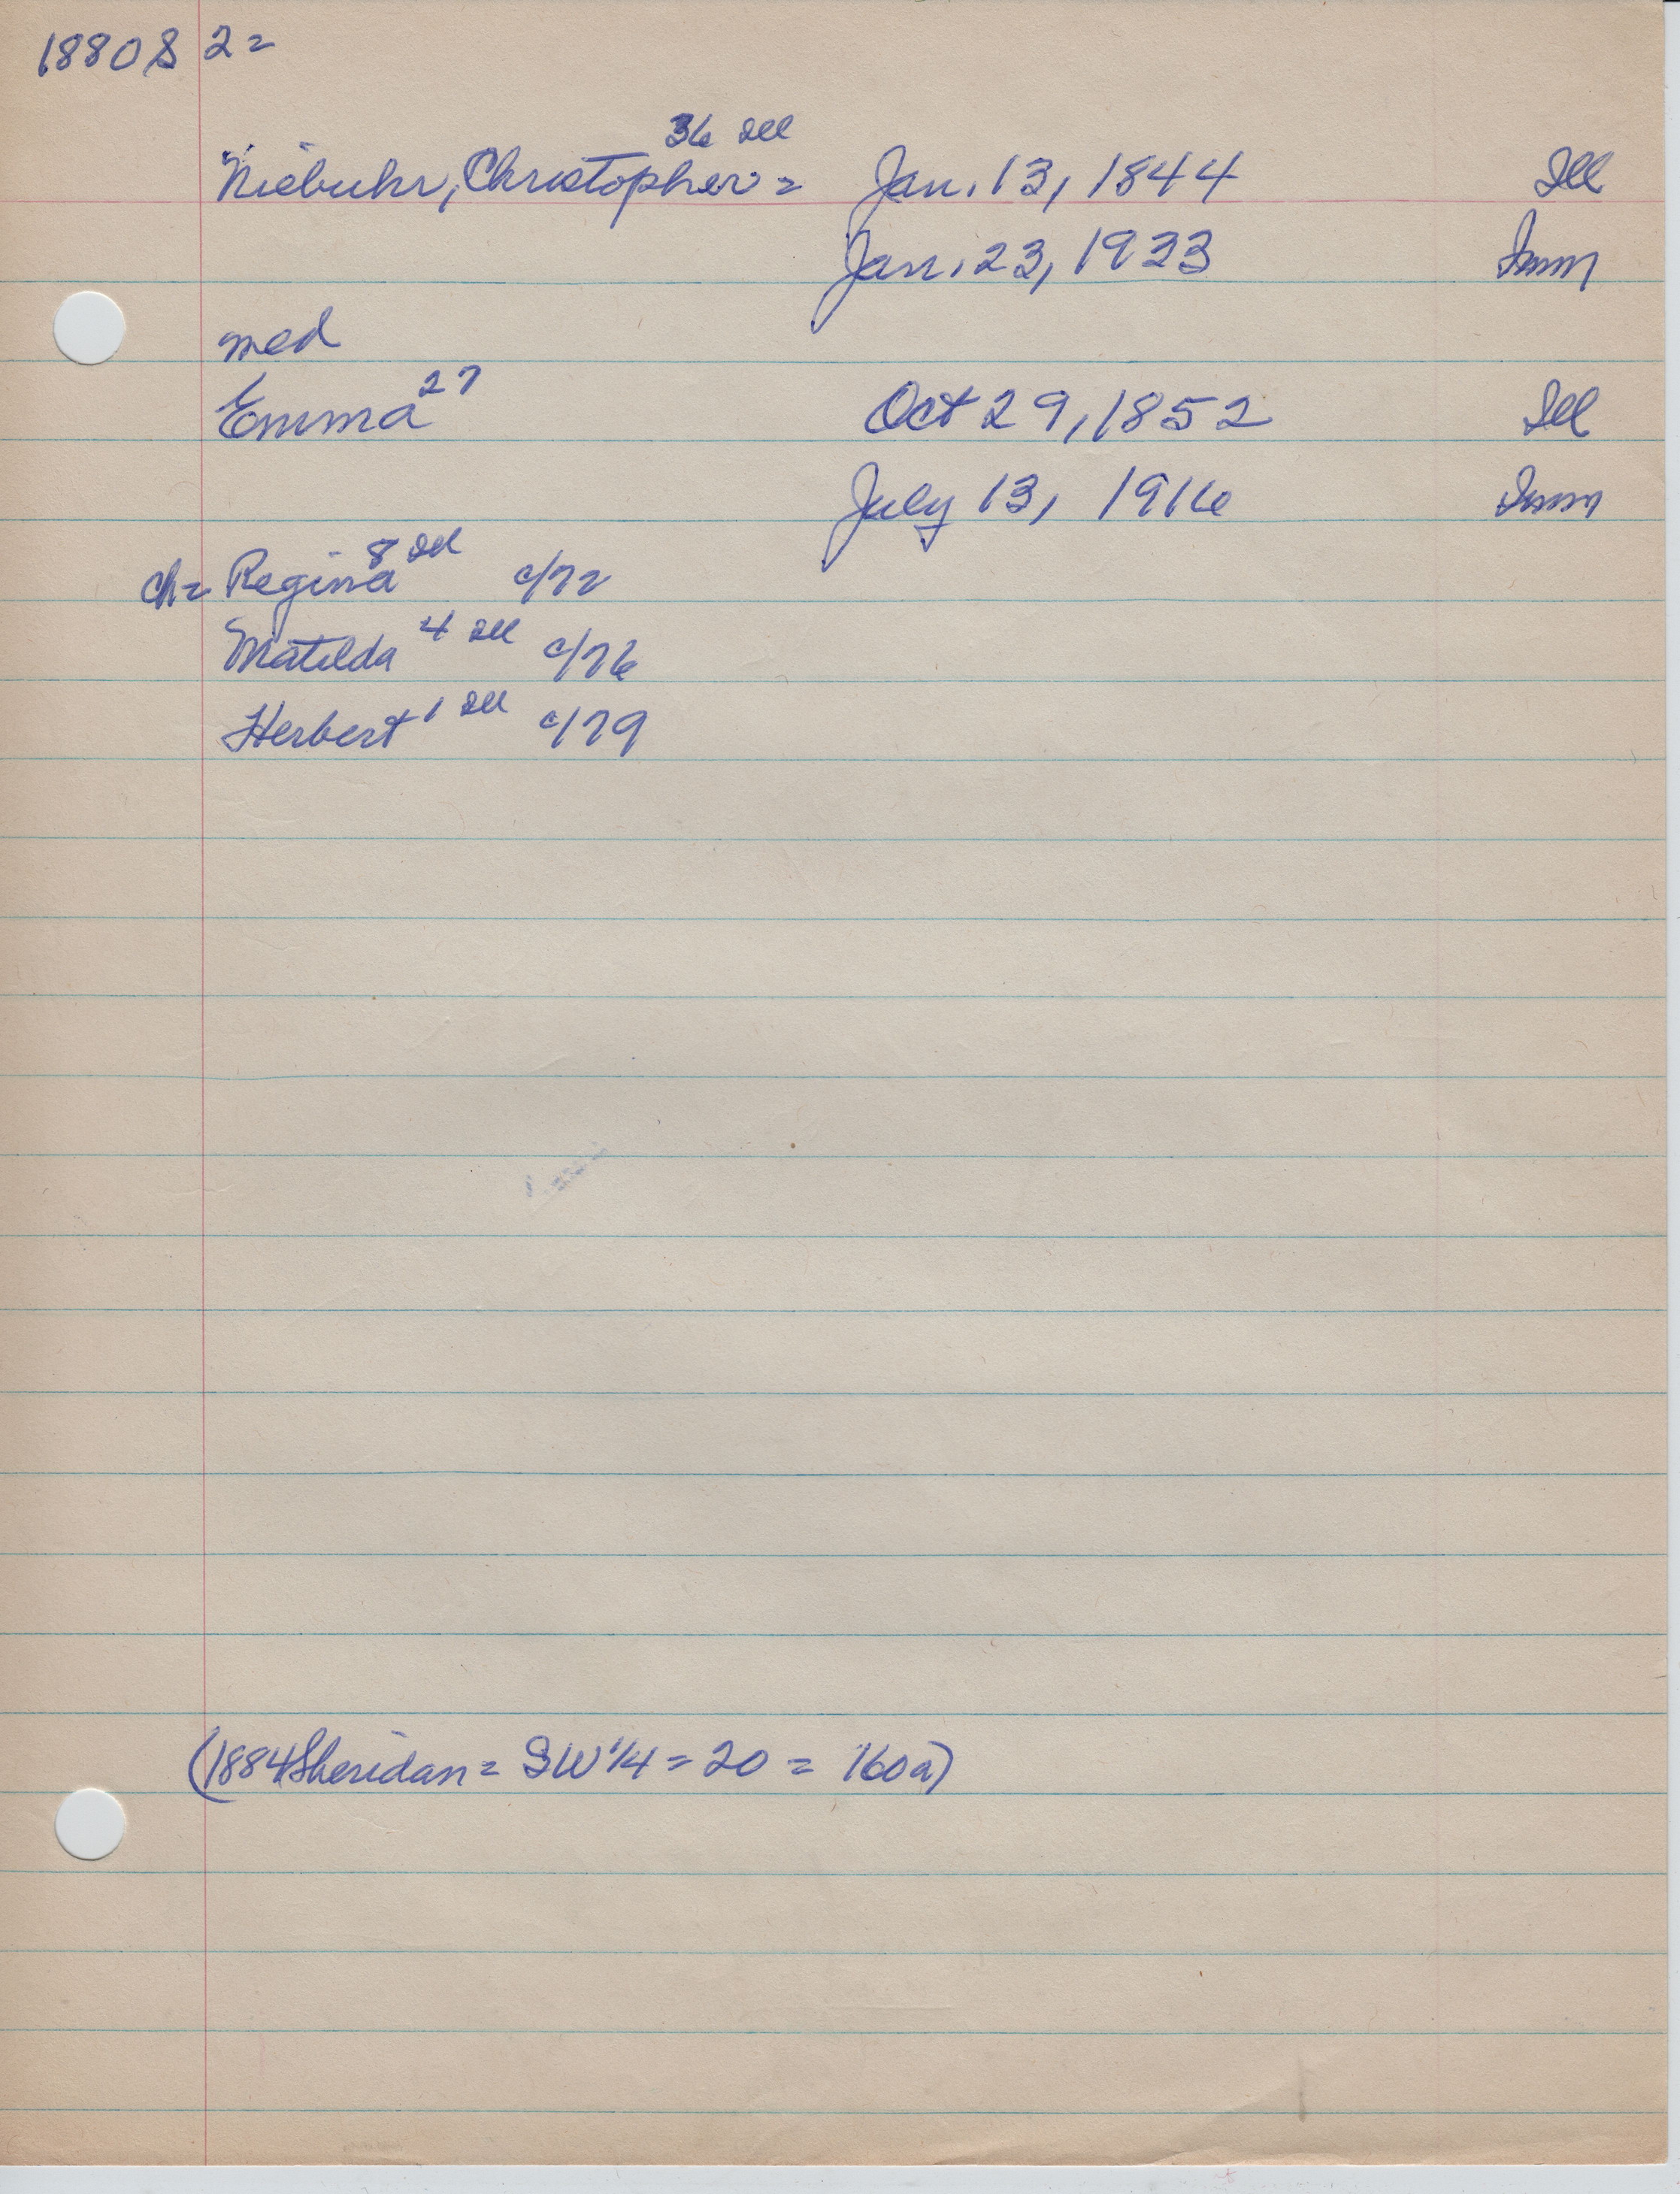 1880 S 2=
36 Ill
Niebuhr, Christopher = Jan. 13, 1844 Ill
Jan. 23, 1933 Imm
med
27
Emma Oct 29, 1852 Ill
July 13, 1916 Imm
8 Ill
ch= Regina c/72
4 Ill
Matilda c/76
1 Ill
Herbert c/79
(1884 Sheridan = SW 1/4 = 20 = 160a)